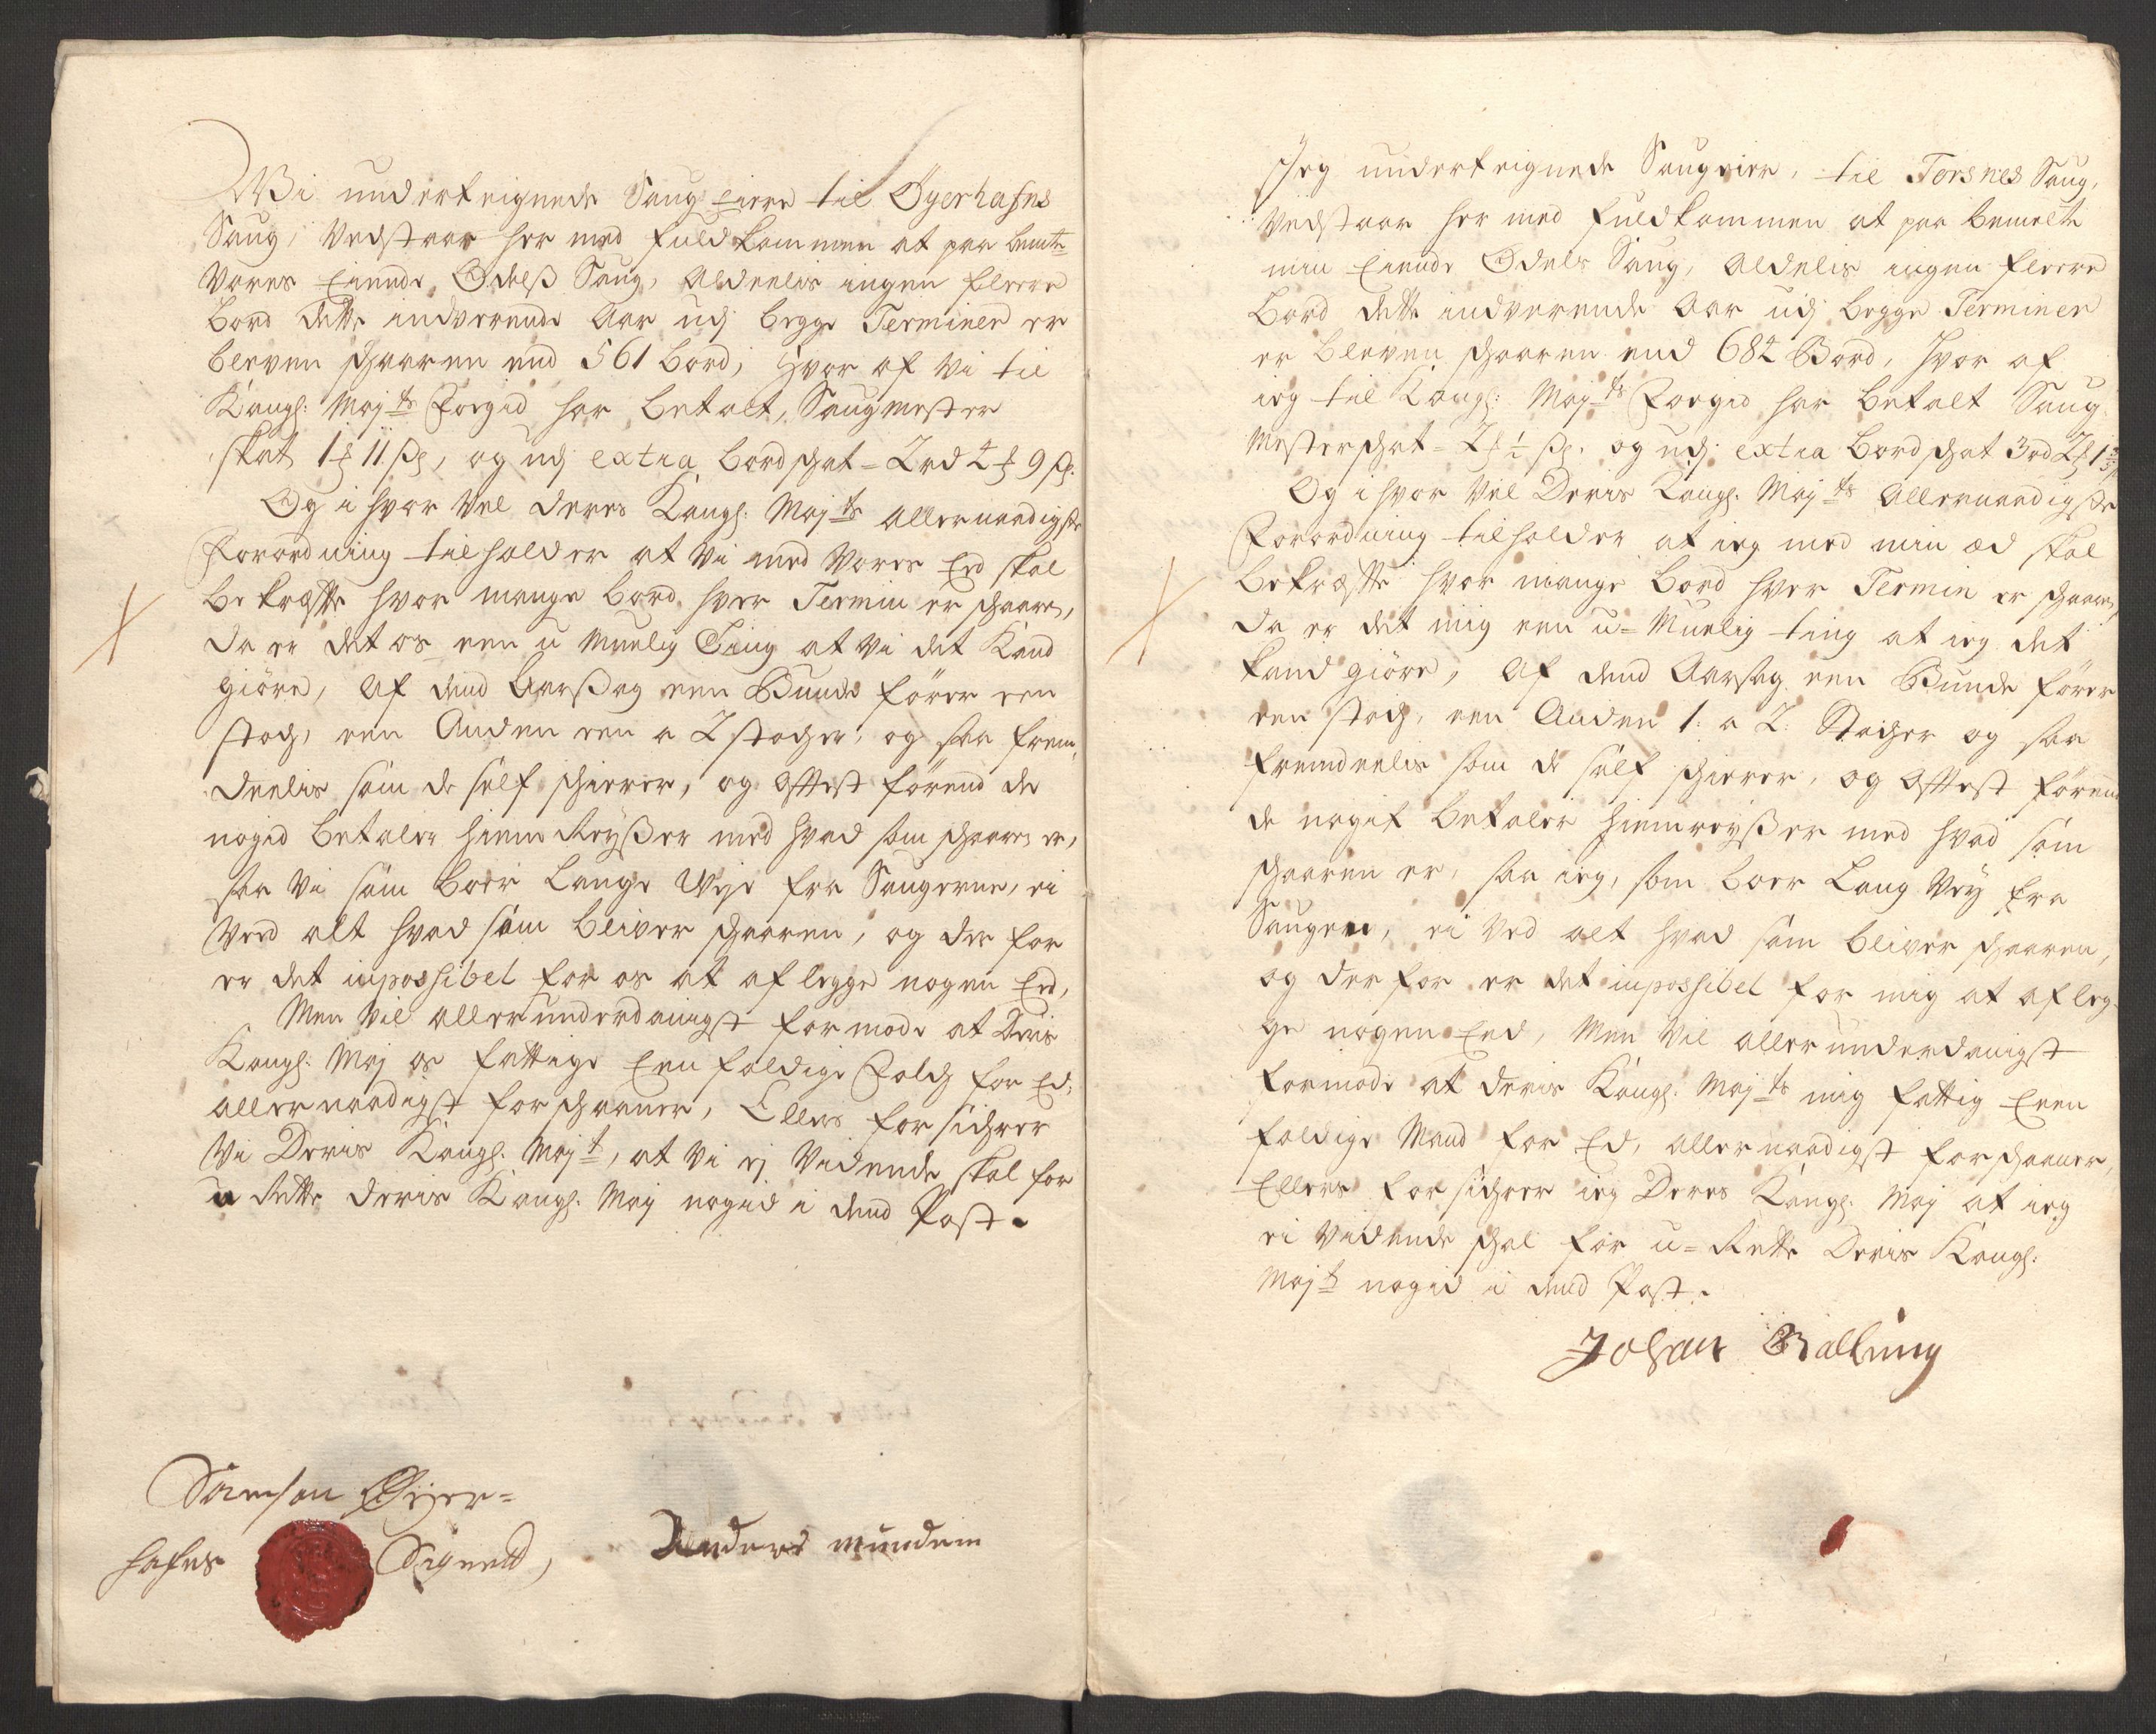 Wi underteignede Saug eiere til Øyerhafns
Saug, Vedstaar her med fuldkommen at paa bemte
Vores Eiende Odelß Saug, Aldeelis ingen fleere
bord dette indverende Aar udj begge Terminer er
bleven schaaren end 561 bord, Hvor af Vi til
Kongl: Mayts Foegid har betalt, Saugmester
skat 1 11 s, og udj extra bordschat = 2 rd 4 9 s.
Og i hvor Vel deres Kongl: Mayts allernaadigste
Forordning tilholder at Vi med Vores Eed skal
bekræffte hvor mange bord hver Termin er schaaren,
da er det os een u Muelig Ting at Vi det Kand
giöre, Af dend Aarßag een Bunde förer een
stoch, een Anden een a 2 stocher, og saa frem,
deelis som de self schierer, og offtest förend de
nogid betaler hiem Reyßer med hvad som schaaren er,
saa Vi som boer Lange Weye fra Saugerne, ei
Veed alt hvad som bliver schaaren, og der for
er det inpossibel for os at aflegge nogen Eed,
Men Vil allerunderdanigst formode at Deris
Kongl: May os fattige Eenfoldige Folch for Ed,
allernaadigst forschaaner, Ellers forsichrer
Vi Deris Kongl: Mayt, at Vi ej Vidende skal for
u Rette deris Kongl: May nogid i dend Post.
Samson Øyer=
hafns Signend,
Anders mundem
Jeg underteignede Saugeier, til Torsnes Saug,
Vedstaar her med fuldkommen at paa bemelte
min Eiende Odels Saug, Aldelis ingen fleere
bord dette indverende Aar udj begge Terminer
er bleven schaaren end 684 Bord, hvor af
ieg til Kongl: Mayts Foegid har betalt Saug
Mesterschat = 2 1/2 s. og udj extra bordschat 3 rd 2 1 3/5
Og i hvor Vel Deris Kongl: Mayts Allernaadigste
Forordning tilholder at ieg med min æd skal
bekræffte hvor mange bord hver Termin er schaaren,
da er det mig een u=Muelig ting at ieg det
kand giöre, Af dend Aarsag een Bunde förer
een stoch, een Anden 1: a 2: Stocher og saa
fremdeelis som de self schierer, og Offtest förend
de nogit betaler hiemreyßer med hvad som
schaaren er, saa ieg, som boer Lang Vey fra
Saugen, ei Ved alt hvad som bliver schaaren,
og der for er det inpossibel for mig at afleg-
ge nogen Eed, Men Vil allerunderdanigst
formode at deris Kongl: Mayts mig fattig Een
foldige Mand for Ed, allernaadigst forschaaner,
Ellers forsichrer ieg Deres Kongl: May at ieg
ei Vidende schal for u=Rette Deris Kongl:
Mayts nogid i dend Post.
Johan Balling